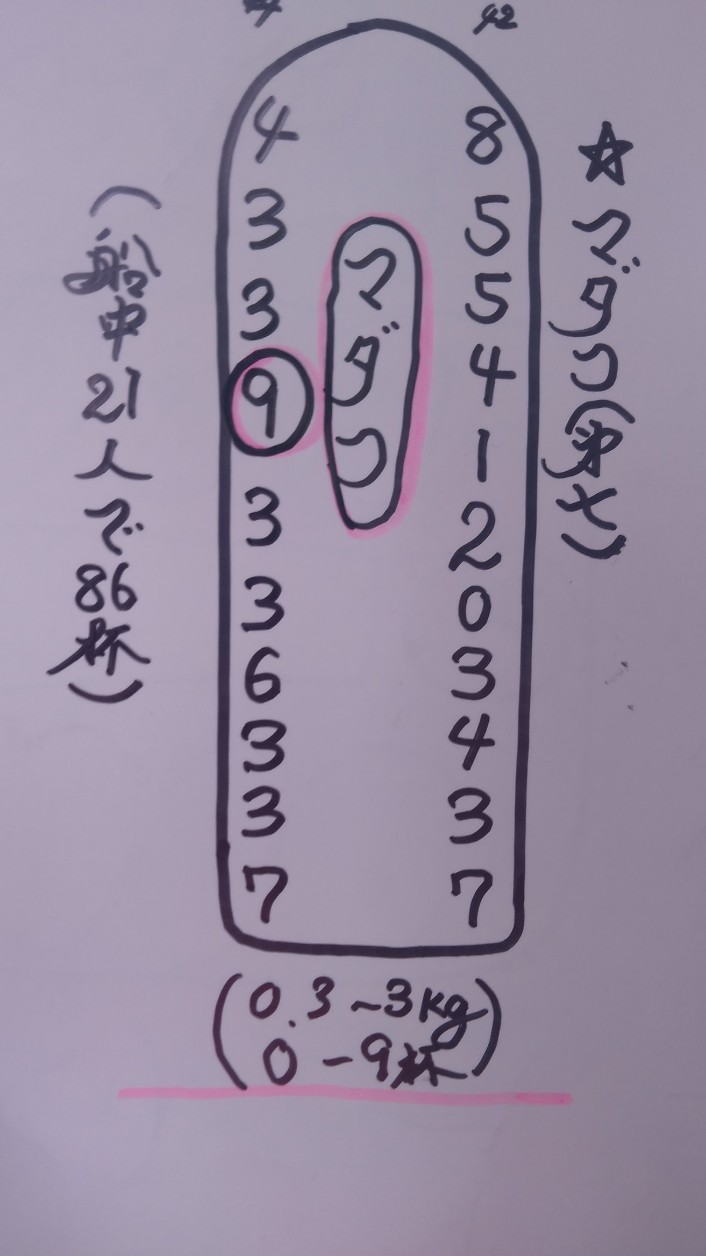 42
☆マダコ
8
5
5
4
1
2
0
3
4
3
7
マダコ
4
3
3
9
3
3
6
3
3
7
(船中21人で86杯)
(0.3~3kg
0-9杯)